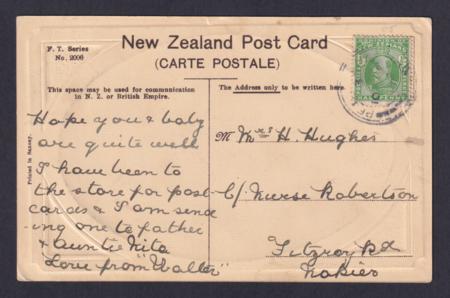 F. T. Series
No. 2006
New Zealand Post Card
(CARTE POSTALE)
This space may be used for communication
in N. Z. or British Empire.
The Address only to be written here.
Printed in Saxony.
Hope you & baby
are quite well
I have been to
the store for post
cards & I am send
ing one to father
& Auntie Nita
Love from "Walter"
M Mrs H. Hughes
C/ Nurse Robertson
Fitzroy Rd
Napier